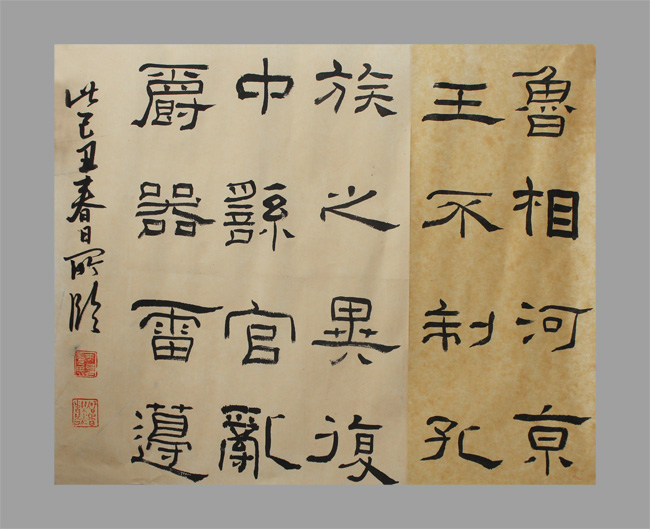 魯相河京
王不制孔
族之異復
中繇官亂
爵器雷
此己丑春日所臨